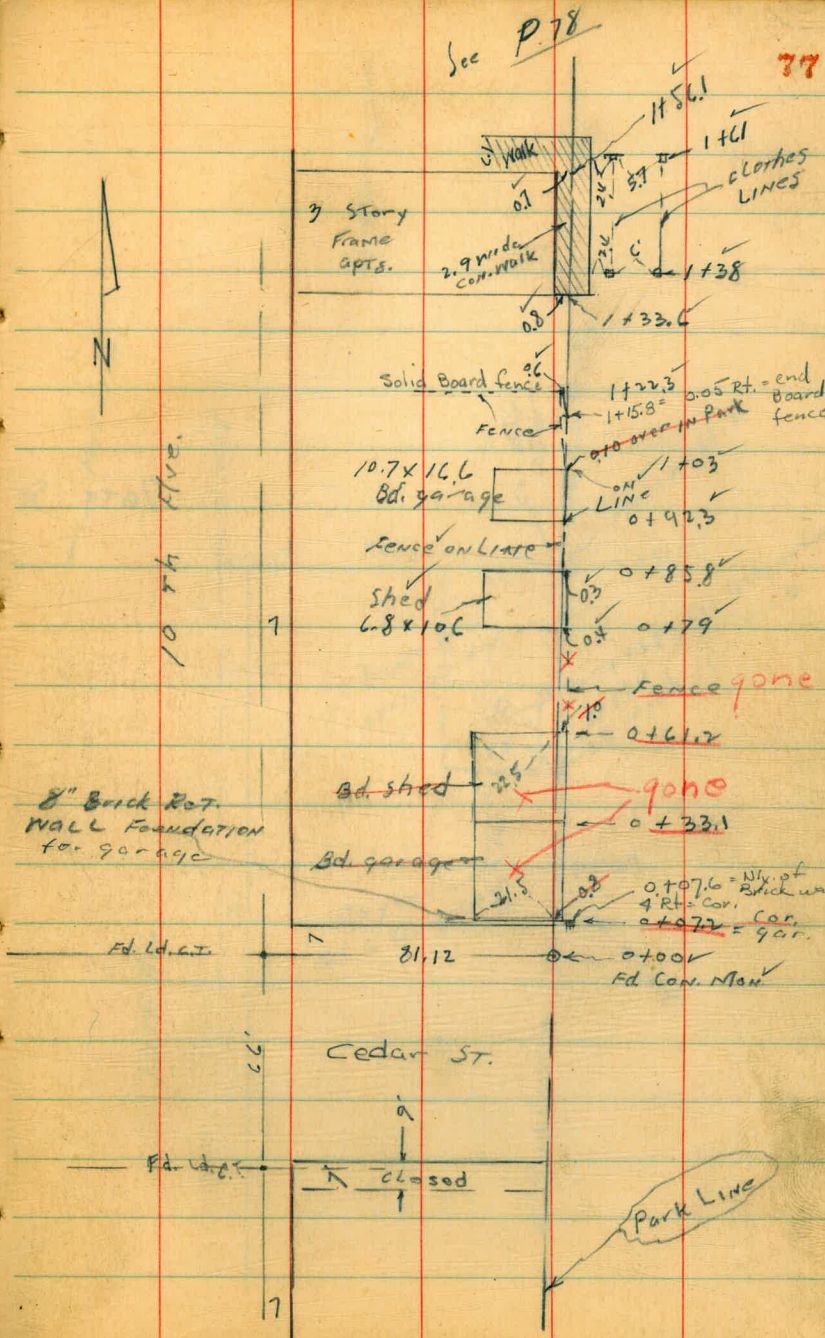 See P. 78
77
1+56.1
Walk
1+61
0.7
5.7
clothes
LINES
3 Story
Frame
apts.
2.9 wide
con. walk
1+38
0.8
1+33.6
0.6
Solid Board fence
1+22.3
1+15.8 = 0.05 Rt. = end
Board
fence
Fence
0.10 over in Park
10.7 x 16.6
Bd. garage
ON
LINE
1+03
0+92.3
Fence on Line
0+85.8
0.3
Shed
6.8 x 10.6
7
0+79
0.4
10th Ave.
N
Fence gone
1.0
0+61.2
Bd. Shed
22.5
gone
8" Brick Ret.
WALL Foundation
for garage
0+33.1
Bd. garage
21.5
0.8
0+07.6 = Nly. of
Brick wa
4 Rt = Cor.
0+07.2 = Cor.
gar.
7
Fd. Ld. C.I.
81.12
0+00
Fd. Con. Mon
66'
Cedar St.
9'
Fd. Ld.
7 Closed
Park Line
7